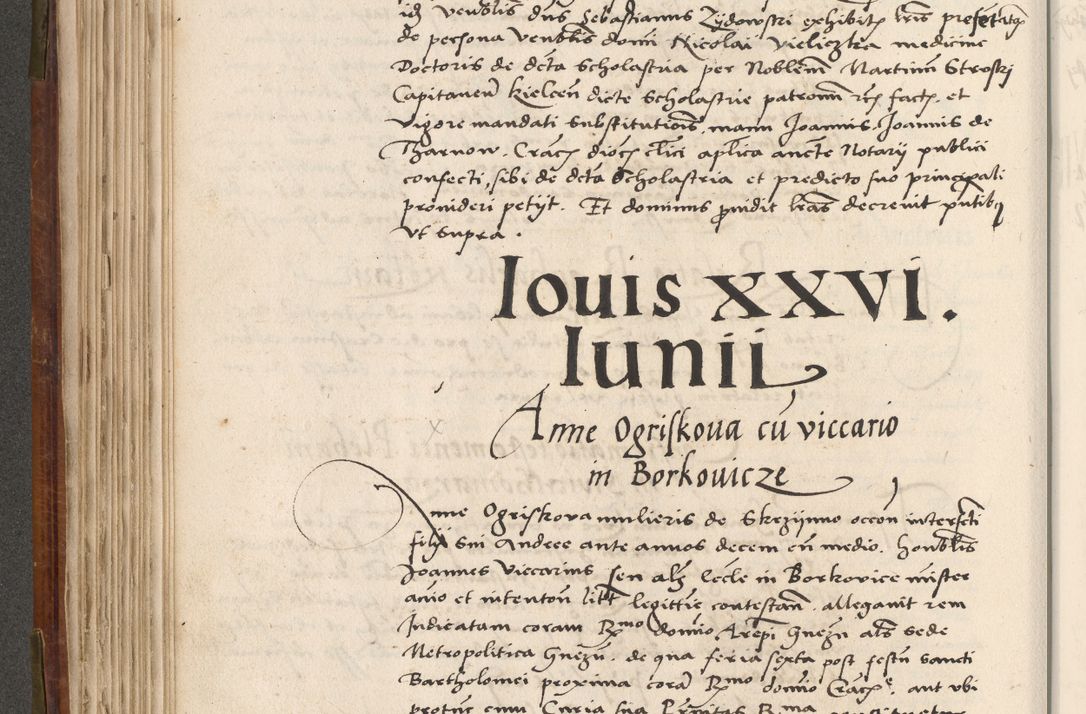 id Venblis dns Sebastianus Zydowski exhibitis lris
de persona Venblis domi Nicolai Vieliczka medicine
Doctoris de dcta Scholastria per Noblem Martinum Stroski
Capitaneu Kielcen dicte Scholastrie patronu et
vigore mandati substitutiois, manu Joannis Joannis de
Tharnow. Crac dioc clici aplica aucte Notarij publici
confecti, sibi de dcta Scholastria et predicto suo principali
provideri petijt. Et dominus lras decrevit
vt supra.
Iouis XXVI.
Iunii
Anne Ogriskoua cu viccario
in Borkouicze
Anne Ogriskova mulieris de Skrzijnno occon interfecti
filij sui Andree ante annos decem cu medio. Honblis
Joannes Viccarius seu als eccle in Borkovice mister
acio et intenton litt legittie contestan. allegauit rem
Iudicatam coram Rmo domio Arepi Gnezn als sede
Metropolitica Gnezn. de qua feria sexta post festu sancti
Bartholomei proxima cora Rmo domio Crac, aut vbi
cum Curia sua Rma